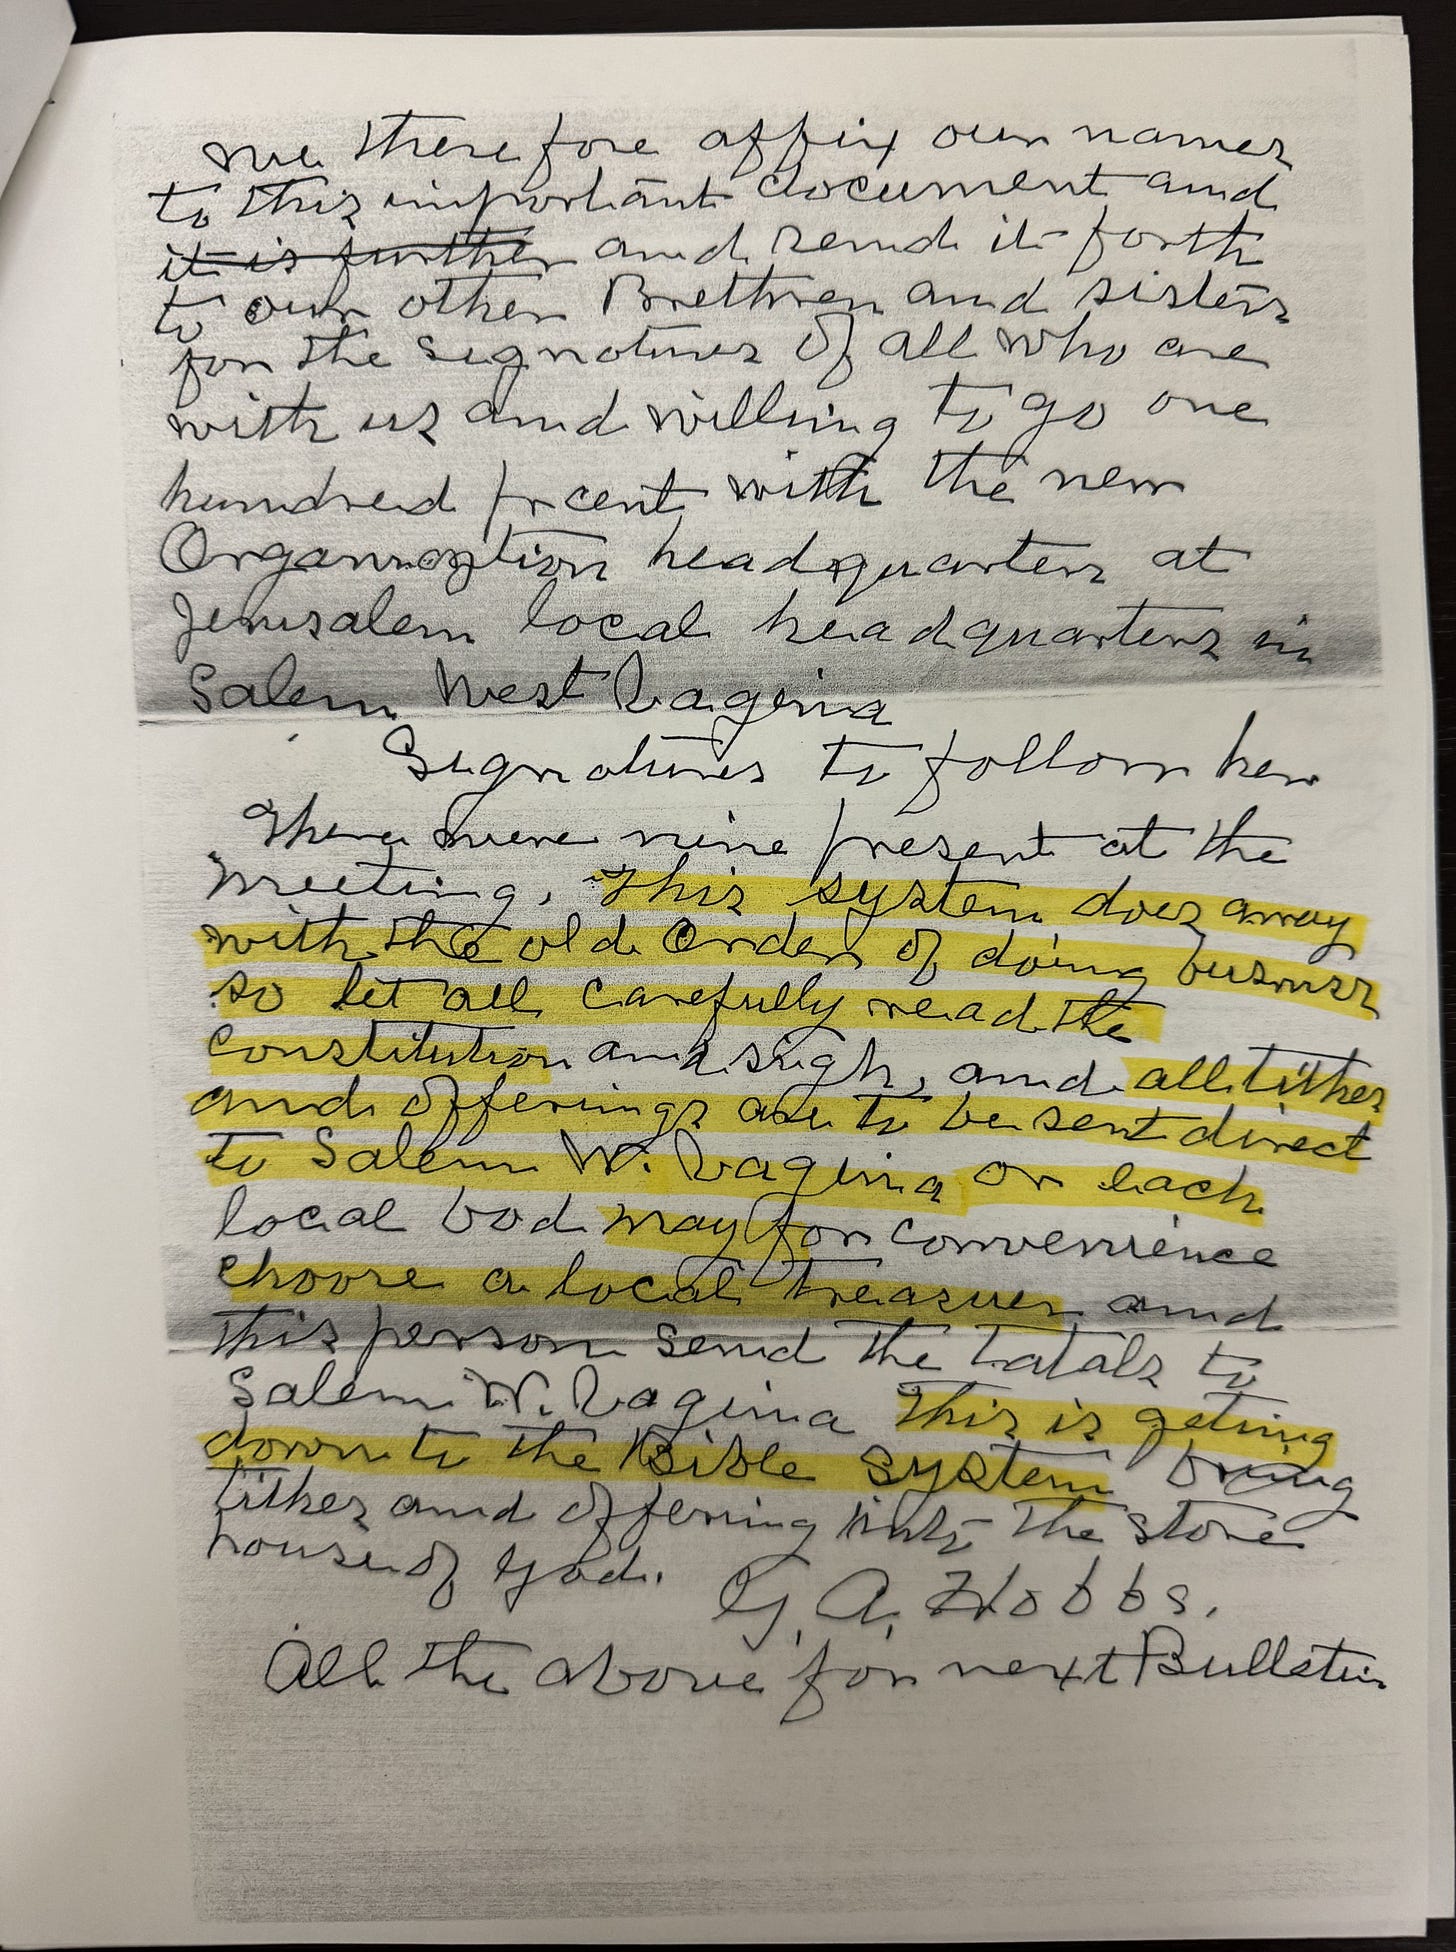 we therefore affix our names
to this important document and
it is further and send it forth
to our other Brethren and sisters
for the signatures of all who are
with us and willing to go one
hundred prcent with the new
Organization headquarters at
Jerusalem local headquarters in
Salem West Vagina
Signatures to follow her
There were nine present at the
meeting, This system does away
with the old Order of doing business
so let all carefully read the
constitution and sigh, and all tithes
and offerings are to be sent direct
to Salem W. Vagina or each
local bod may for convenience
choose a local treasuer and
this person send the tatals to
Salem W. Vagina This is geting
down to the Bible system bring
tithes and offering into the store
house of God. G. A. Hobbs.
All the above for next Bulletin